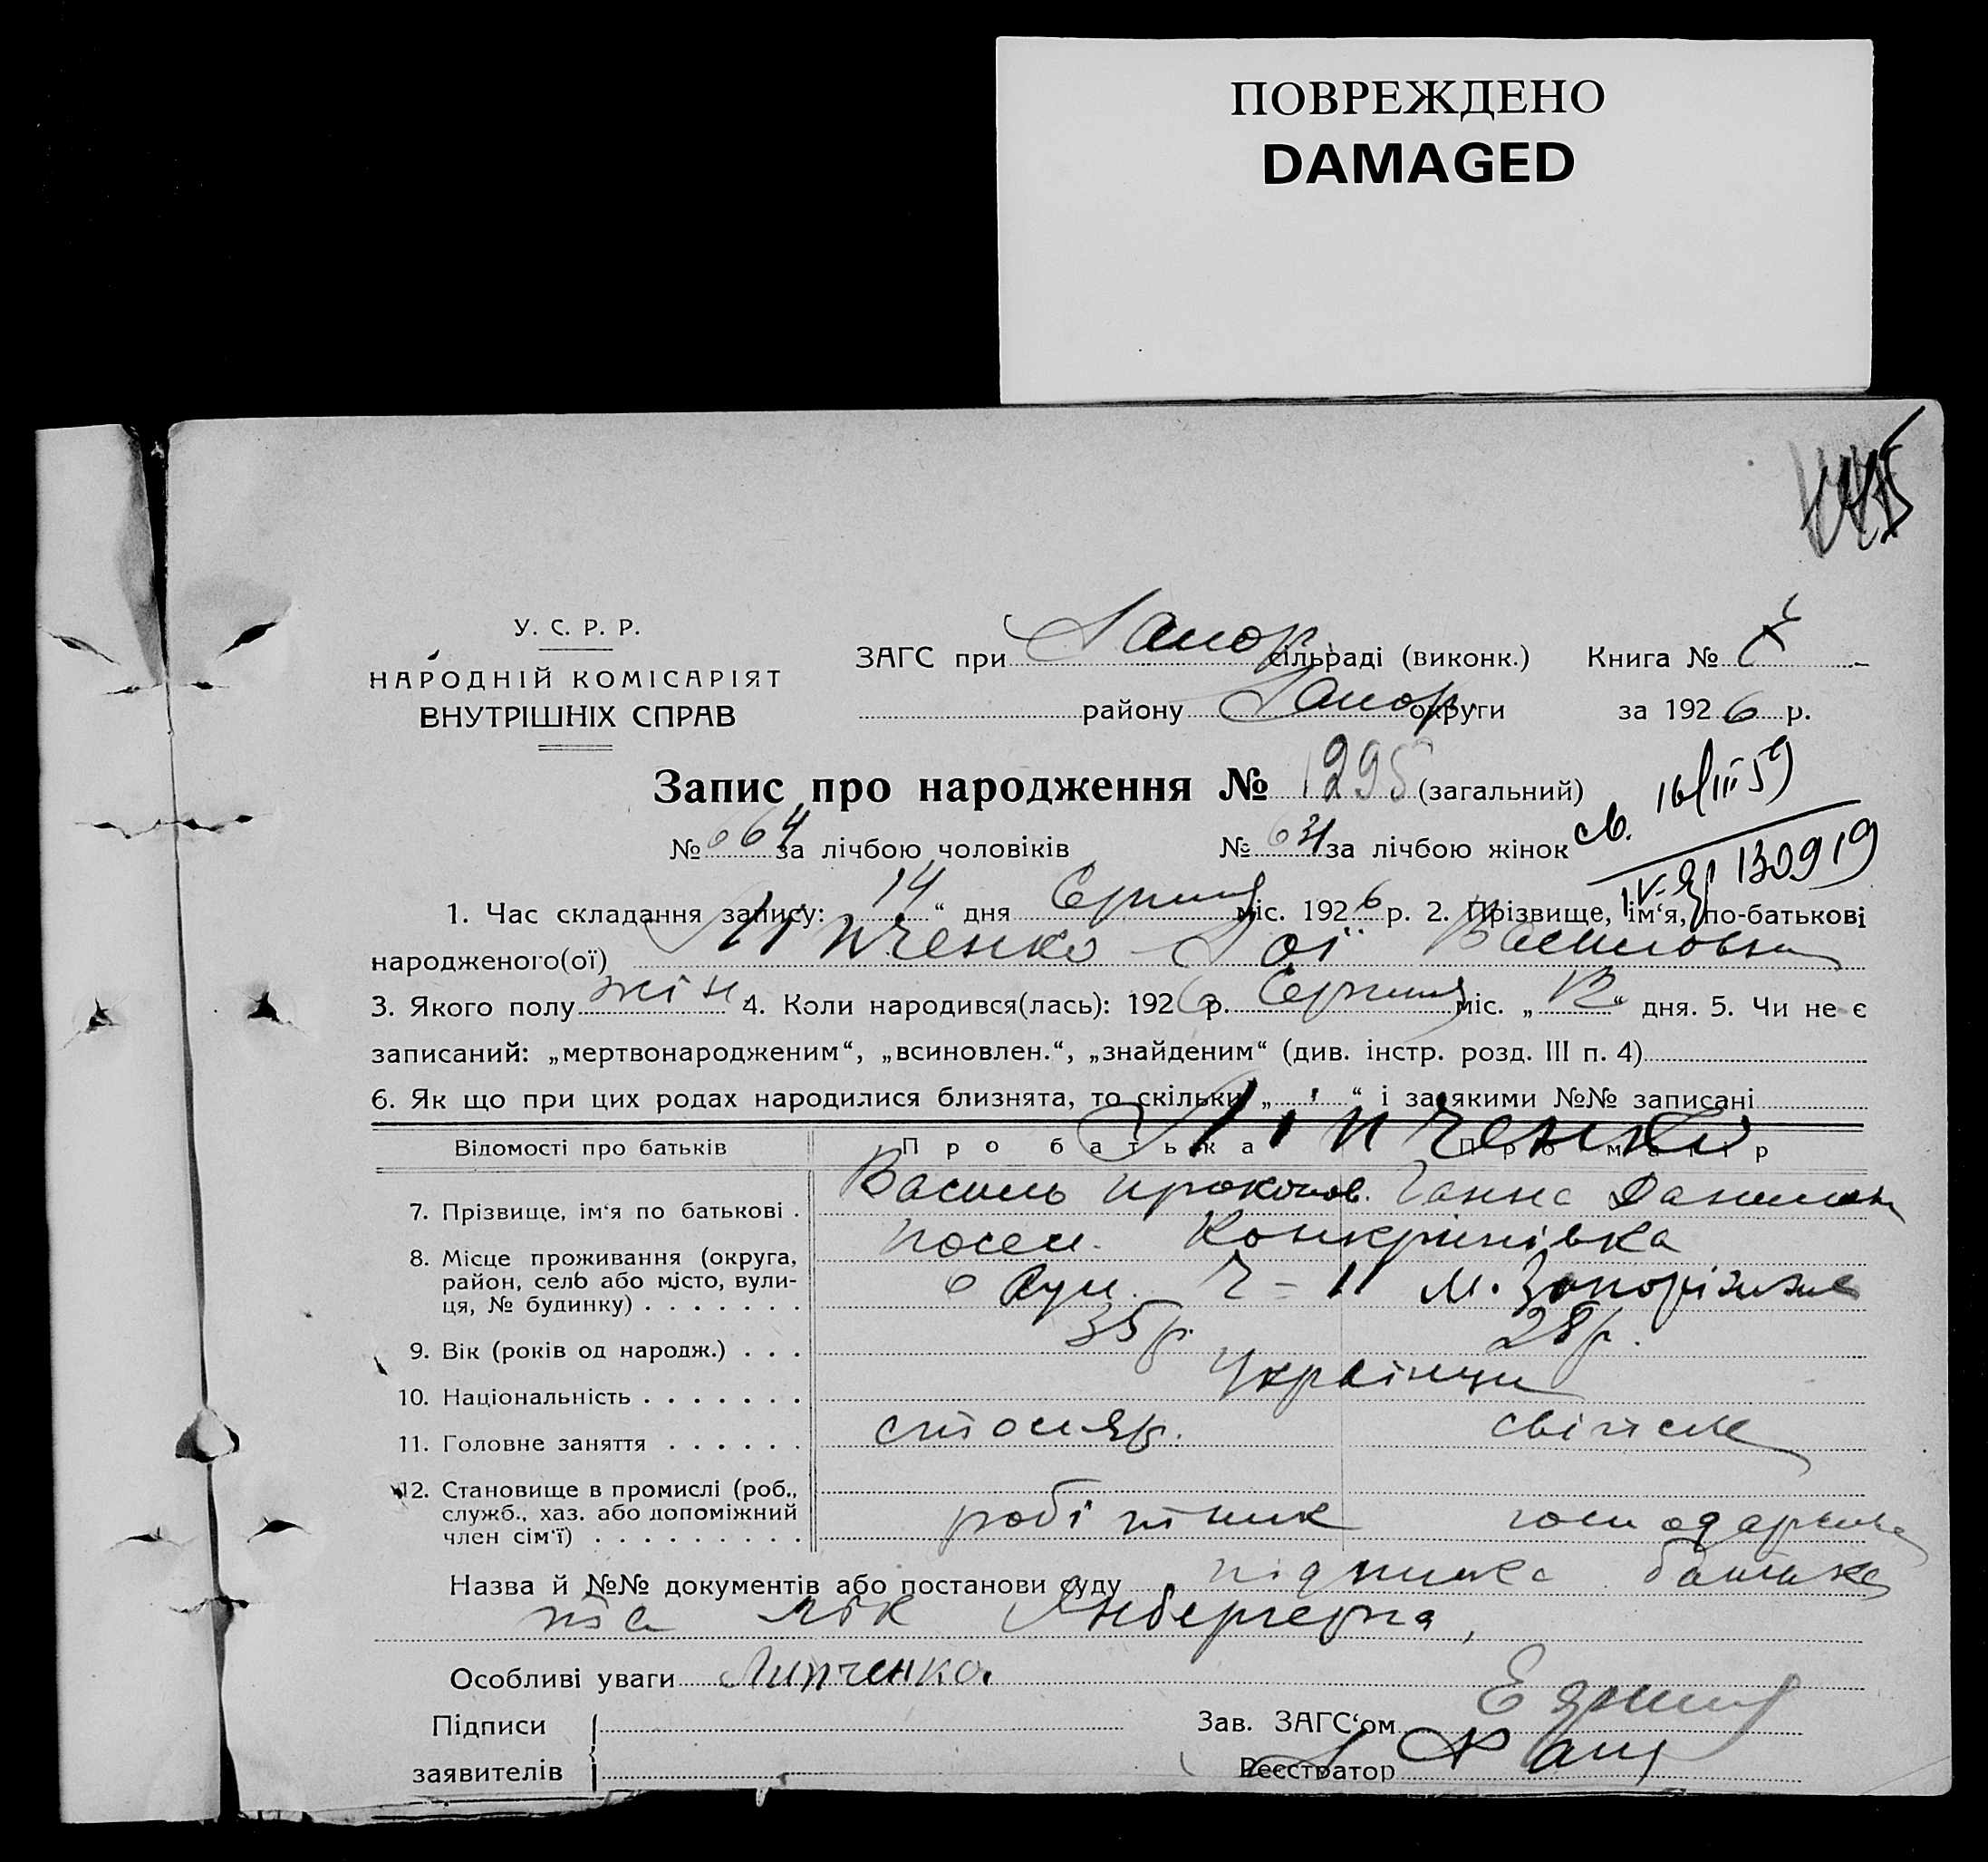 ПОВРЕЖДЕНО
DAMAGED
У. С. Р. Р.
НАРОДНІЙ КОМІСАРІЯТ
ВНУТРІШНІХ СПРАВ
ЗАГС при Запор. сільраді (виконк.) Книга №
району Запор. округи за 1926 р.
Запис про народження № 1295 (загальний)
№ 664 за лічбою чоловіків № 631 за лічбою жінок
св. 16/III 59
IV-ЯР 130919
1. Час складання запису: „14“ дня Серпня міс. 1926 р. 2. Прізвище, ім‘я, по-батькові
народженого(ої) Ліпченко Зої Василовна
3. Якого полу жін. 4. Коли народився(лась): 1926 р. Серпня міс. „12“ дня. 5. Чи не є
записаний: „мертвонародженим“, „всиновлен.“, „знайденим“ (див. інстр. розд. III п. 4)
6. Як що при цих родах народилися близнята, то скільки „ “ і за якими №№ записані
Відомості про батьків Про батька Про матір
Ліпченко
7. Прізвище, ім‘я по батькові . Василь Прокопов. Ганна Данилов
8. Місце проживання (округа, район, село або місто, вулиця, № будинку) . . . . . . . посел.
6 вул. Ч = 11 м. Запоріжжя
9. Вік (років од народж.) . . . 35 р. 28 р.
10. Національність . . . . . . . Українци
11. Головне заняття . . . . . . столяр.
12. Становище в промислі (роб., служб., хаз. або допоміжний член сім‘ї) . . . . . . . . . робітник господарка
Назва й №№ документів або постанови суду підписка батька
та лік
Особливі уваги Липченко.
Підписи
заявителів
Зав. ЗАГС‘ом
Реєстратор